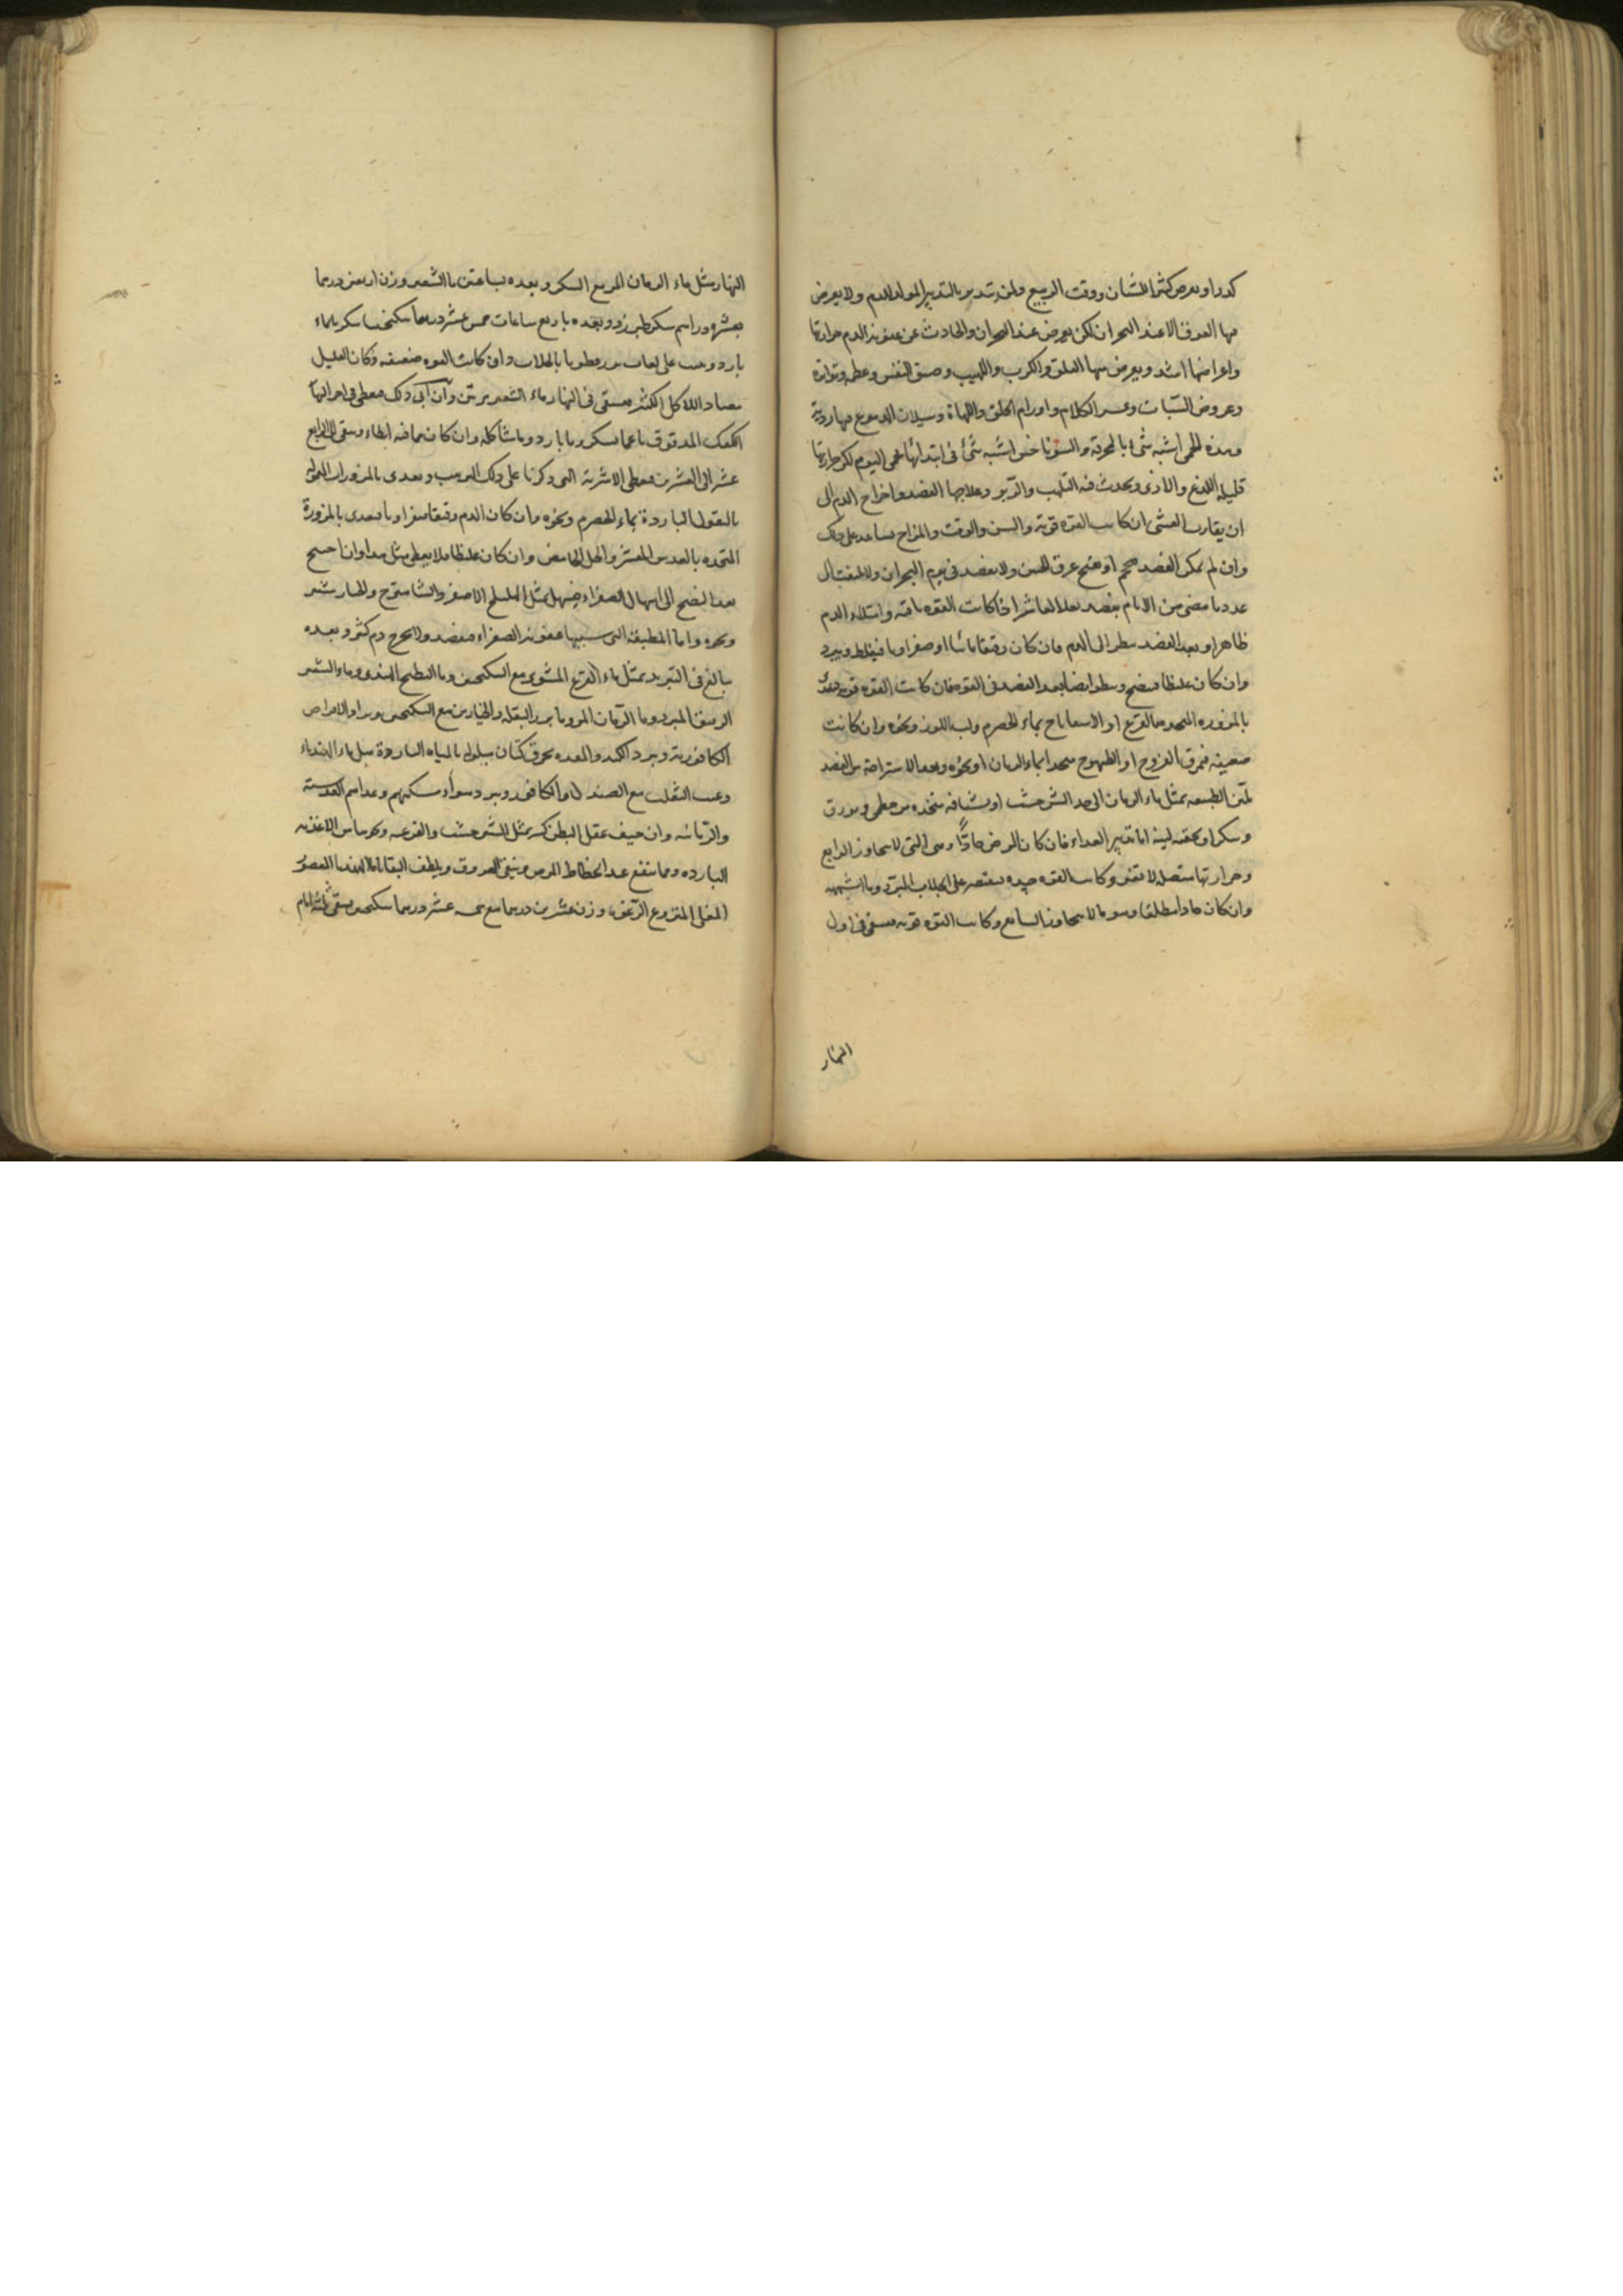 كدرا ويعرض كثيرا للشبان ووقت الربيع ولمن تدبر بالتدبير المولد للدم ولا يعرض
فيها العرق الا عند البحران لكن يعرض عند البحران والحادث عن عفونة الدم حرارتها
واعراضها اشد ويعرض فيها القلق والكرب واللهيب وضيق النفس وعظمه وتواتره
وعروض السبات وعسر الكلام واورام الحلق واللهاة وسيلان الدموع فيها ردية
وهذه الحمى اشبه شئ بالمحرقة والسونوخس اشبه شئ في ابتدائها بحمى اليوم لكن حرارتها
قليلة اللذع والاذى ويحدث فيه التلهب وعلاجها الفصد واخراج الدم الى
ان يقارب الغشى ان كانت القوة قوية والسن والوقت والمزاج يساعد على ذلك
وان لم يمكن الفصد حجم او فتح عرق الجبين ولا يفصد في يوم البحران ولا
عدد ما مضى من الايام يفصد بعد العاشر اذا كانت القوة باقية وامتلاء الدم
ظاهرا وبعد الفصد ينظر الى الدم فان كان رقيقا مائيا او صفراويا فيغلظ ويبرد
وان كان غليظا فينضج وينظر ايضا بعد الفصد في القوة فان كانت القوة قوية
بالمزورة المتخذة بالقرع او الاسفاناخ بماء الحصرم ولب اللوز ونحوه وان كانت
ضعيفة فمرق الفروج او الطيهوج متخذا بماء الرمان او نحوه وبعد الاستراحة من الفصد
تلين الطبيعة بمثل ماء الرمان الى حد الشيرخشت او بشيافة متخذة من خطمى وبورق
وسكر او بحقنة لينة اما تدبير الغذاء فان كان المرض حادا وهى التى لا يتجاوز الرابع
وحرارتها متصلة لا تفتر وكانت القوة جيدة يقتصر على الجلاب المبرد وما اشبهه
وان كان حادا مطلقا وهو ما لا يتجاوز السابع وكانت القوة قوية فيسقى في اول
النهار
النهار مثل ماء الرمان المز مع السكر وبعده بساعتين ماء الشعير وزن اربعين درهما
بعشرة دراهم سكر طبرزد وبعده باربع ساعات خمس عشر درهما سكنجبينا سكريا بماء
بارد ويمص على لعاب بزر قطونا بالجلاب وان كانت القوة ضعيفة وكان العليل
معتاد الاكل الكثير فيسقى في النهار ماء الشعير مرتين وان ابى ذلك فيعطى في اخر النهار
الكعك المدقوق ناعما بسكر وماء بارد وما شاكله وان كان مما فيه ابطاء وينتهى الى الرابع
عشر الى العشرين فيعطى الاشربة التى ذكرنا على ذلك الترتيب ويغذى بالمزورات المعمولة
بالبقول الباردة بماء الحصرم ونحوه وان كان الدم رقيقا صفراويا فيغذى بالمزورة
المتخذة بالعدس المقشر والخل الحامض وان كان غليظا فلا يعطى مثل هذا وان احتيج
بعد النضج الى اسهال الصفراء فيسهل بمثل الهليلج الاصفر والشاهترج والخيارشنبر
ونحوه واما المطبقة التى سببها عفونة الصفراء فيفصد ولا يخرج دم كثير وبعده
يبالغ في التبريد بمثل ماء القرع المشوى مع السكنجبين وماء البطيخ الهندى وماء الشعير
الرقيق المبرد وماء الرمان المز وماء بزر البقلة والخيارين مع السكنجبين وبالاقراص
الكافورية وتبرد الكبد والمعدة بخرق كتان مبلولة بالمياه الباردة مثل ماء الهندباء
وعنب الثعلب مع الصندل والكافور ويبرد هواء مسكنهم وغذاءهم العدسية
والرمانية وان خيف عقل البطن كسر بمثل الشيرخشت والقرعية ونحوها من الاغذية
الباردة ومما ينفع عند انحطاط المرض وينقى العروق ويلطف البقايا ماء الهندبا المعصور
المغلى المنزوع الرغوة وزن عشرين درهما مع خمسة عشر درهما سكنجبين يسقى ثلثة ايام